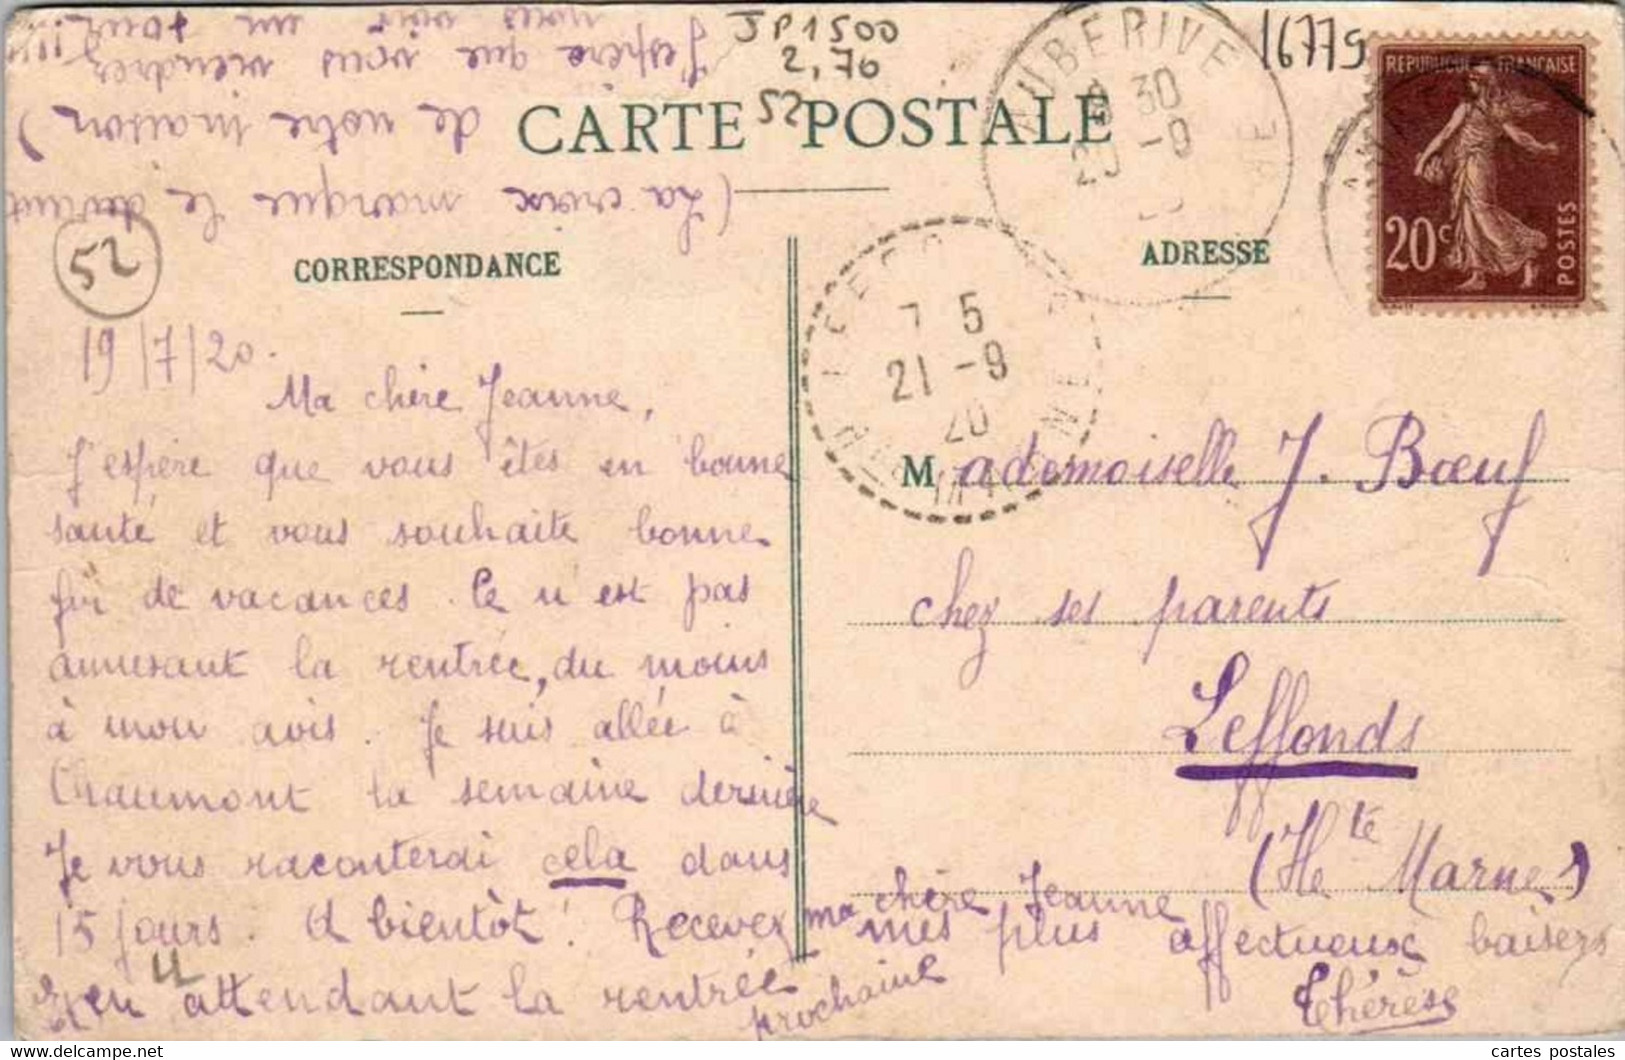 J P 1500
2,76
52
16775
CARTE POSTALE
CORRESPONDANCE
ADRESSE
52
AUBERIVE
30
20 -9
7 5
21 -9
20
REPUBLIQUE FRANÇAISE
20c
POSTES
19/7/20.
Ma chère Jeanne,
J'espère que vous êtes en bonne
santé et vous souhaite bonne
fin de vacances. Ce n'est pas
amusant la rentrée, du moins
à mon avis. Je suis allée à
Chaumont la semaine dernière
Je vous raconterai cela dans
15 jours. A bientôt! Recevez ma chère Jeanne
en attendant la rentrée prochaine
mes plus affectueux baisers
Thérèse
(La croix marque le devant
de notre maison)
J'espère que vous viendrez
nous voir un jour !!!
Mademoiselle J. Bœuf
chez ses parents
Leffonds
(Hte Marne)
cartes postales